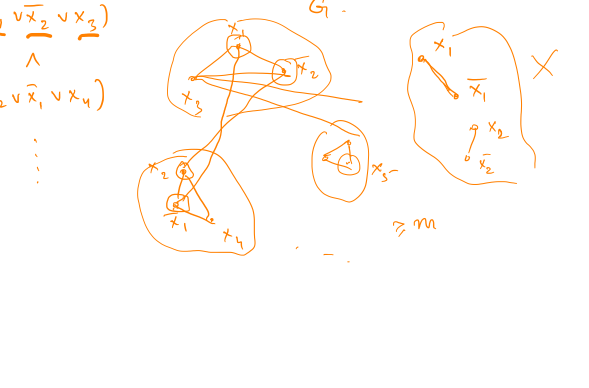 ∨ x̄₂ ∨ x₃)
∧
₂ ∨ x̄₁ ∨ x₄)
G
x₁
x̄₂
x₃
x₂
x̄₁
x₄
x₅
≥ m
x₁
x̄₁
x₂
x̄₂
X